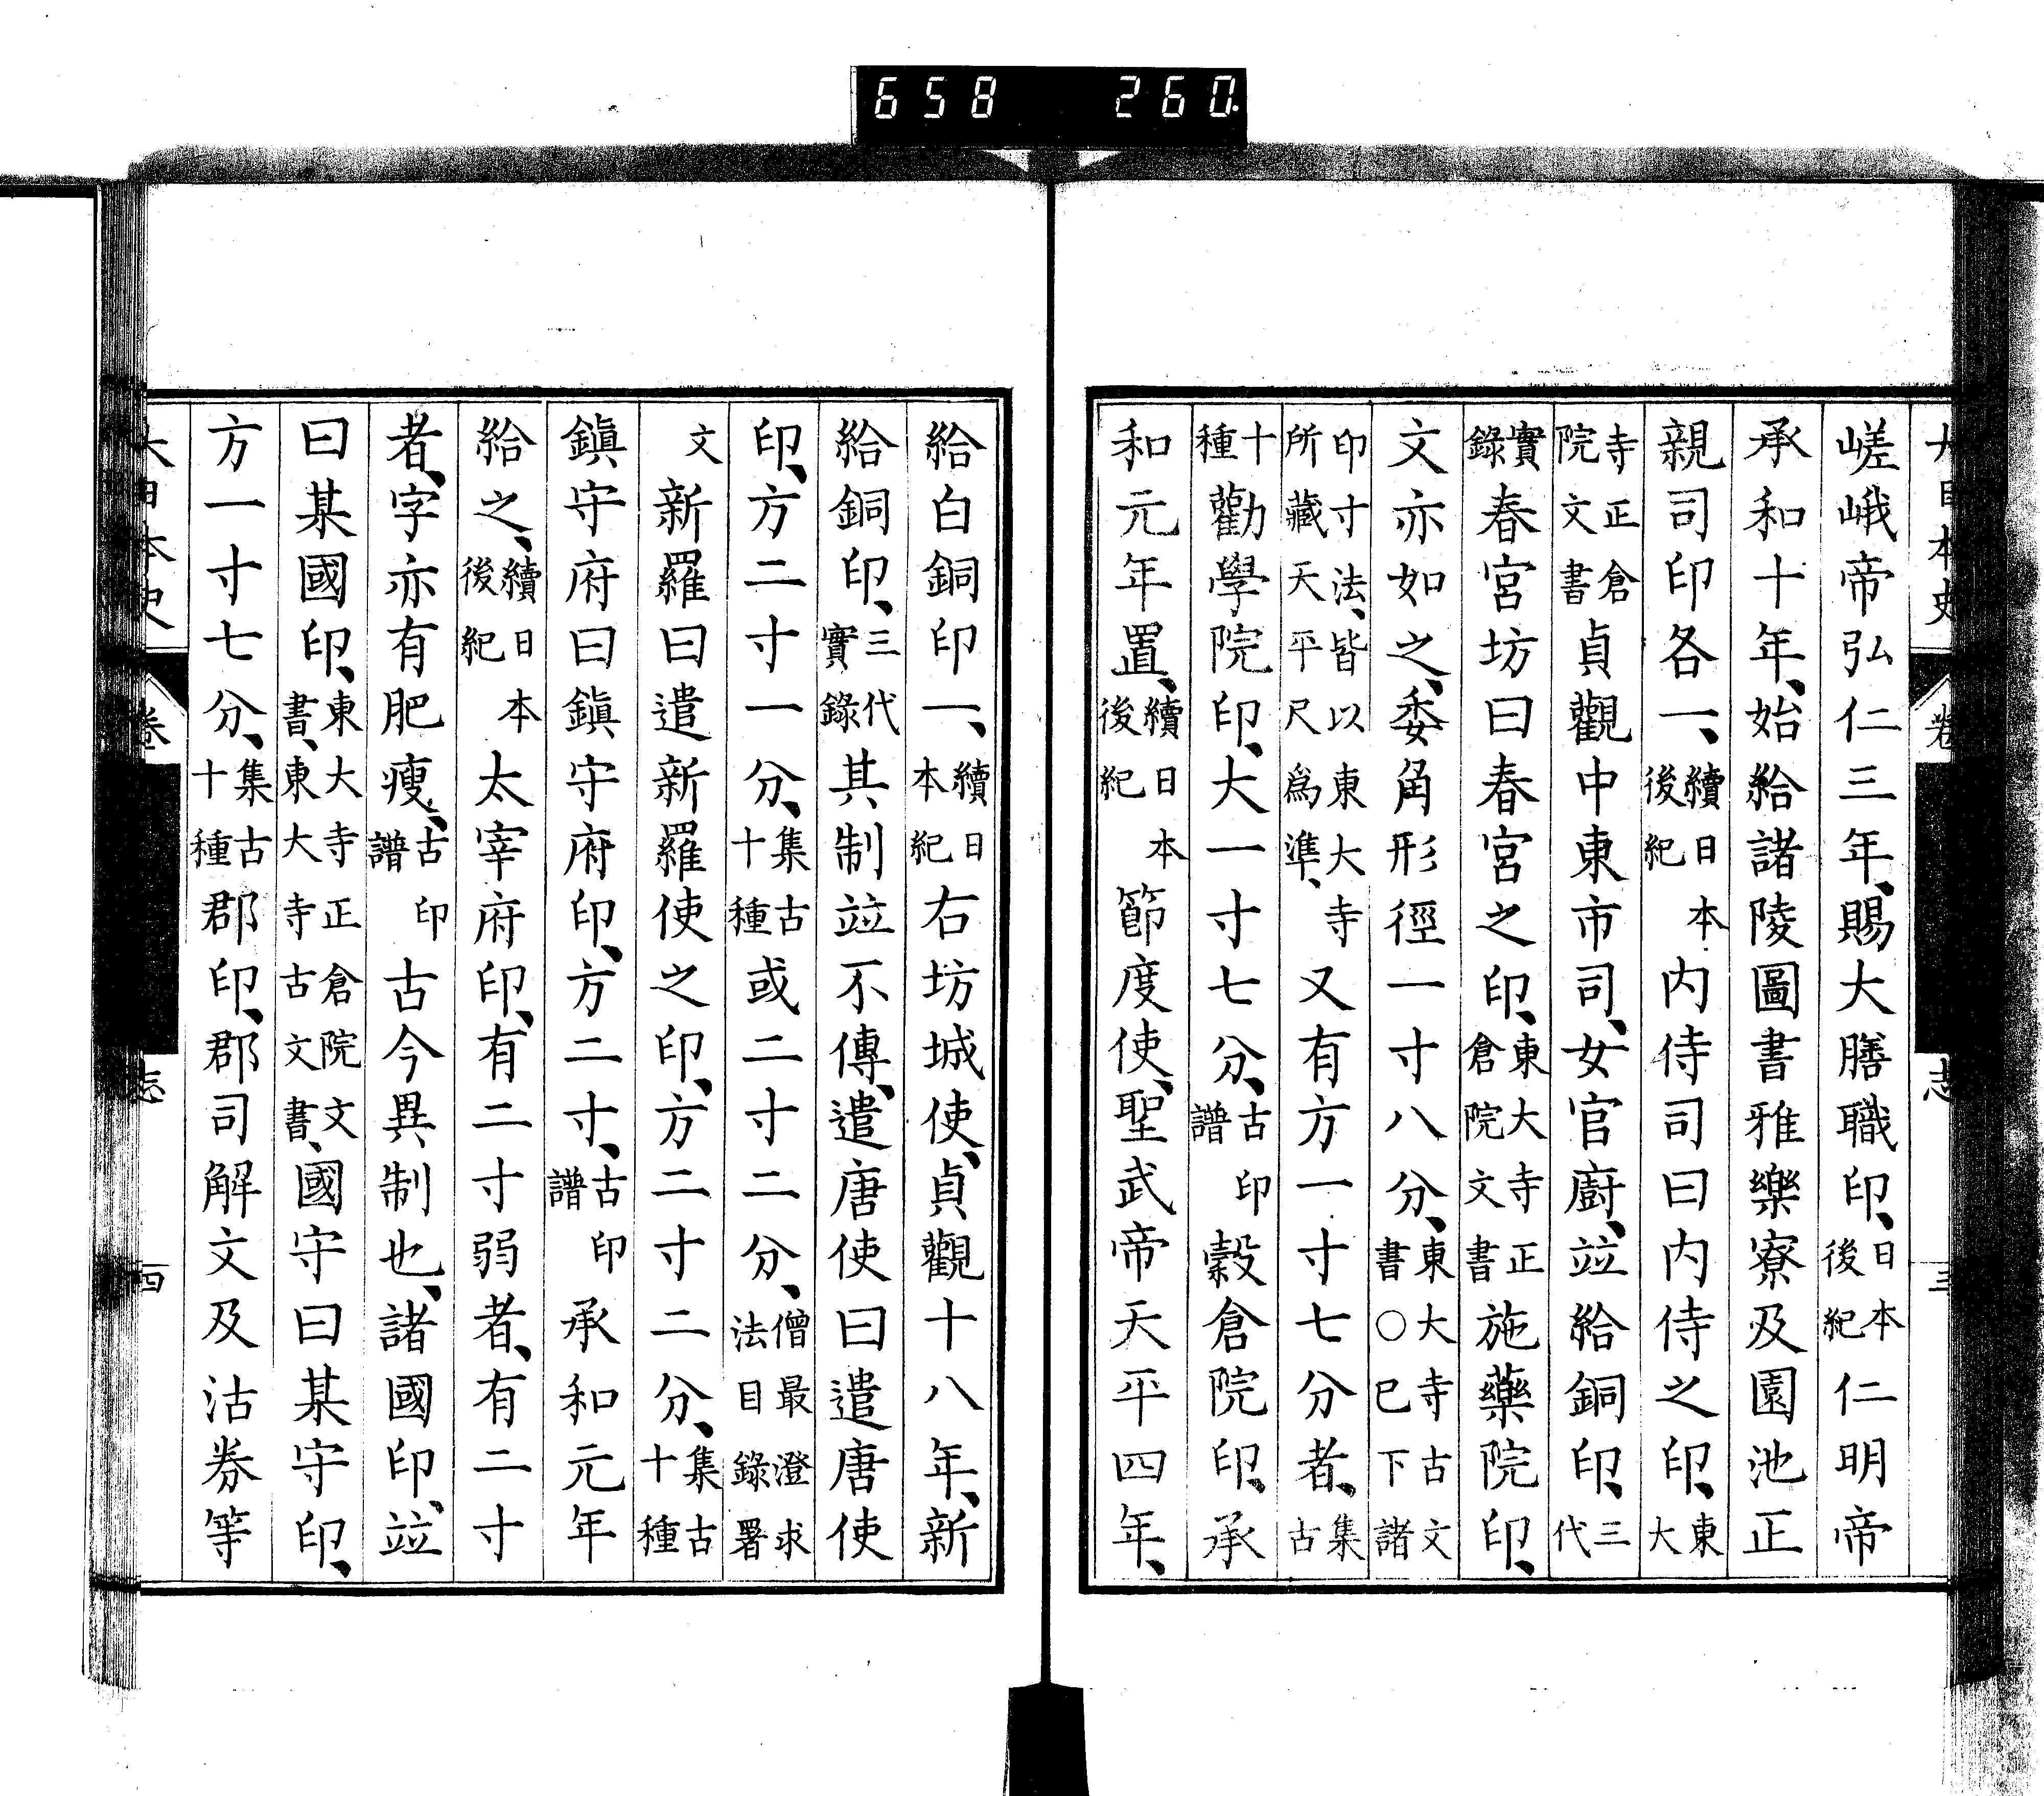 658 260
大日本史 卷 志 三
嵯峨帝弘仁三年、賜大膳職印、日本後紀仁明帝
承和十年、始給諸陵圖書雅樂寮及園池正
親司印各一、續日本後紀内侍司曰内侍之印、東大
寺正倉院文書貞觀中東市司、女官廚、竝給銅印、三代
實錄春宮坊曰春宮之印、東大寺正倉院文書施藥院印、
文亦如之、委角形徑一寸八分、東大寺古文書○已下諸
印寸法、皆以東大寺所藏天平尺爲準、又有方一寸七分者、集古
十種勸學院印、大一寸七分、古印譜穀倉院印、承
和元年置、續日本後紀節度使、聖武帝天平四年、
給白銅印一、續日本紀右坊城使、貞觀十八年、新
給銅印、三代實錄其制竝不傳、遣唐使曰遣唐使
印、方二寸一分、集古十種或二寸二分、僧最澄求法目錄署
文新羅曰遣新羅使之印、方二寸二分、集古十種
鎭守府曰鎭守府印、方二寸、古印譜承和元年
給之、續日本後紀太宰府印、有二寸弱者、有二寸
者、字亦有肥瘦、古印譜古今異制也、諸國印、竝
曰某國印、東大寺正倉院文書、東大寺古文書、國守曰某守印、
方一寸七分、集古十種郡印、郡司解文及沽券等
大日本史 卷 志 四